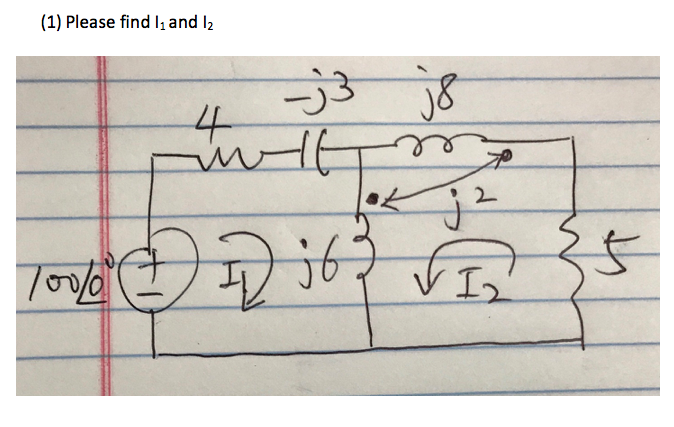 (1) Please find I₁ and I₂
-j3 j8
4
j2
100∠0° + - I₁ j6 I₂ 5